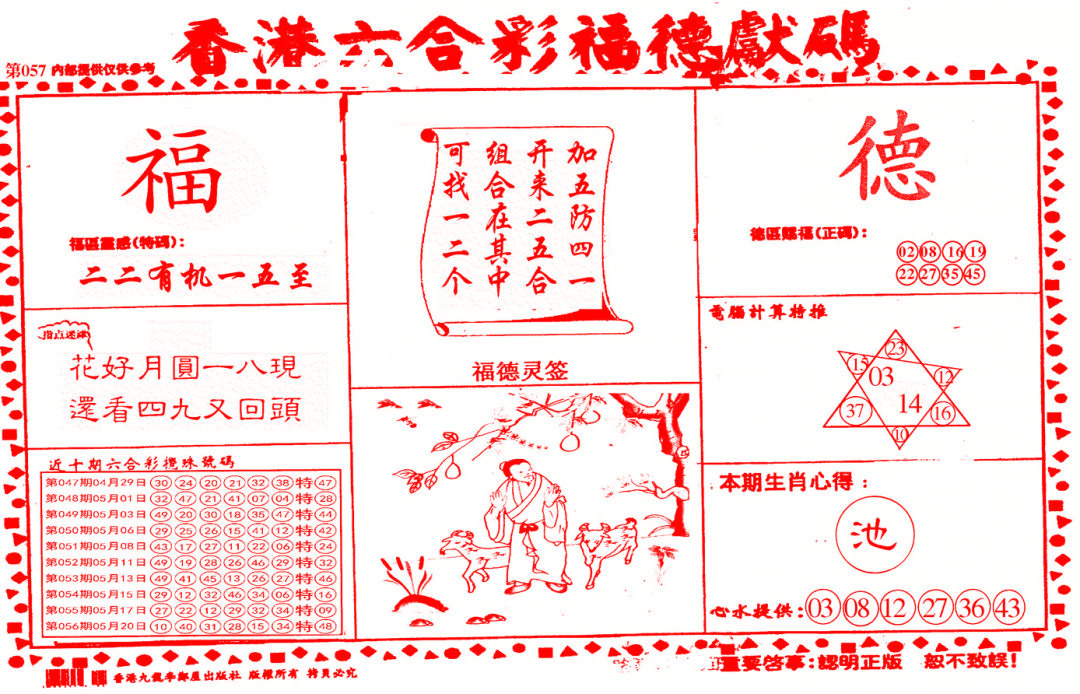 香港六合彩福德獻碼
第057 内部提供仅供参考
福
福區靈感(特碼):
二二有机一五至
指点迷津
花好月圓一八現
還看四九又回頭
近十期六合彩攪珠號碼
第047期04月29日 30 24 20 21 32 38 特 47
第048期05月01日 32 47 21 41 07 04 特 28
第049期05月03日 49 20 30 18 35 47 特 44
第050期05月06日 29 25 26 15 41 12 特 42
第051期05月08日 43 17 27 11 22 06 特 24
第052期05月11日 49 19 28 26 46 29 特 32
第053期05月13日 49 41 45 13 26 27 特 46
第054期05月15日 29 12 32 46 34 06 特 16
第055期05月17日 27 22 12 29 32 34 特 09
第056期05月20日 10 40 31 28 15 34 特 48
加五防四一
开来二五合
组合在其中
可找一二个
福德灵签
德
德區賜福(正碼):
02 08 16 19
22 27 35 45
電腦計算特推
23
15 03 12
37 14 16
10
本期生肖心得:
池
心水提供: 03 08 12 27 36 43
香港九龍李鄭屋出版社 版權所有 拷貝必究
重要啓事:認明正版 恕不致誤!